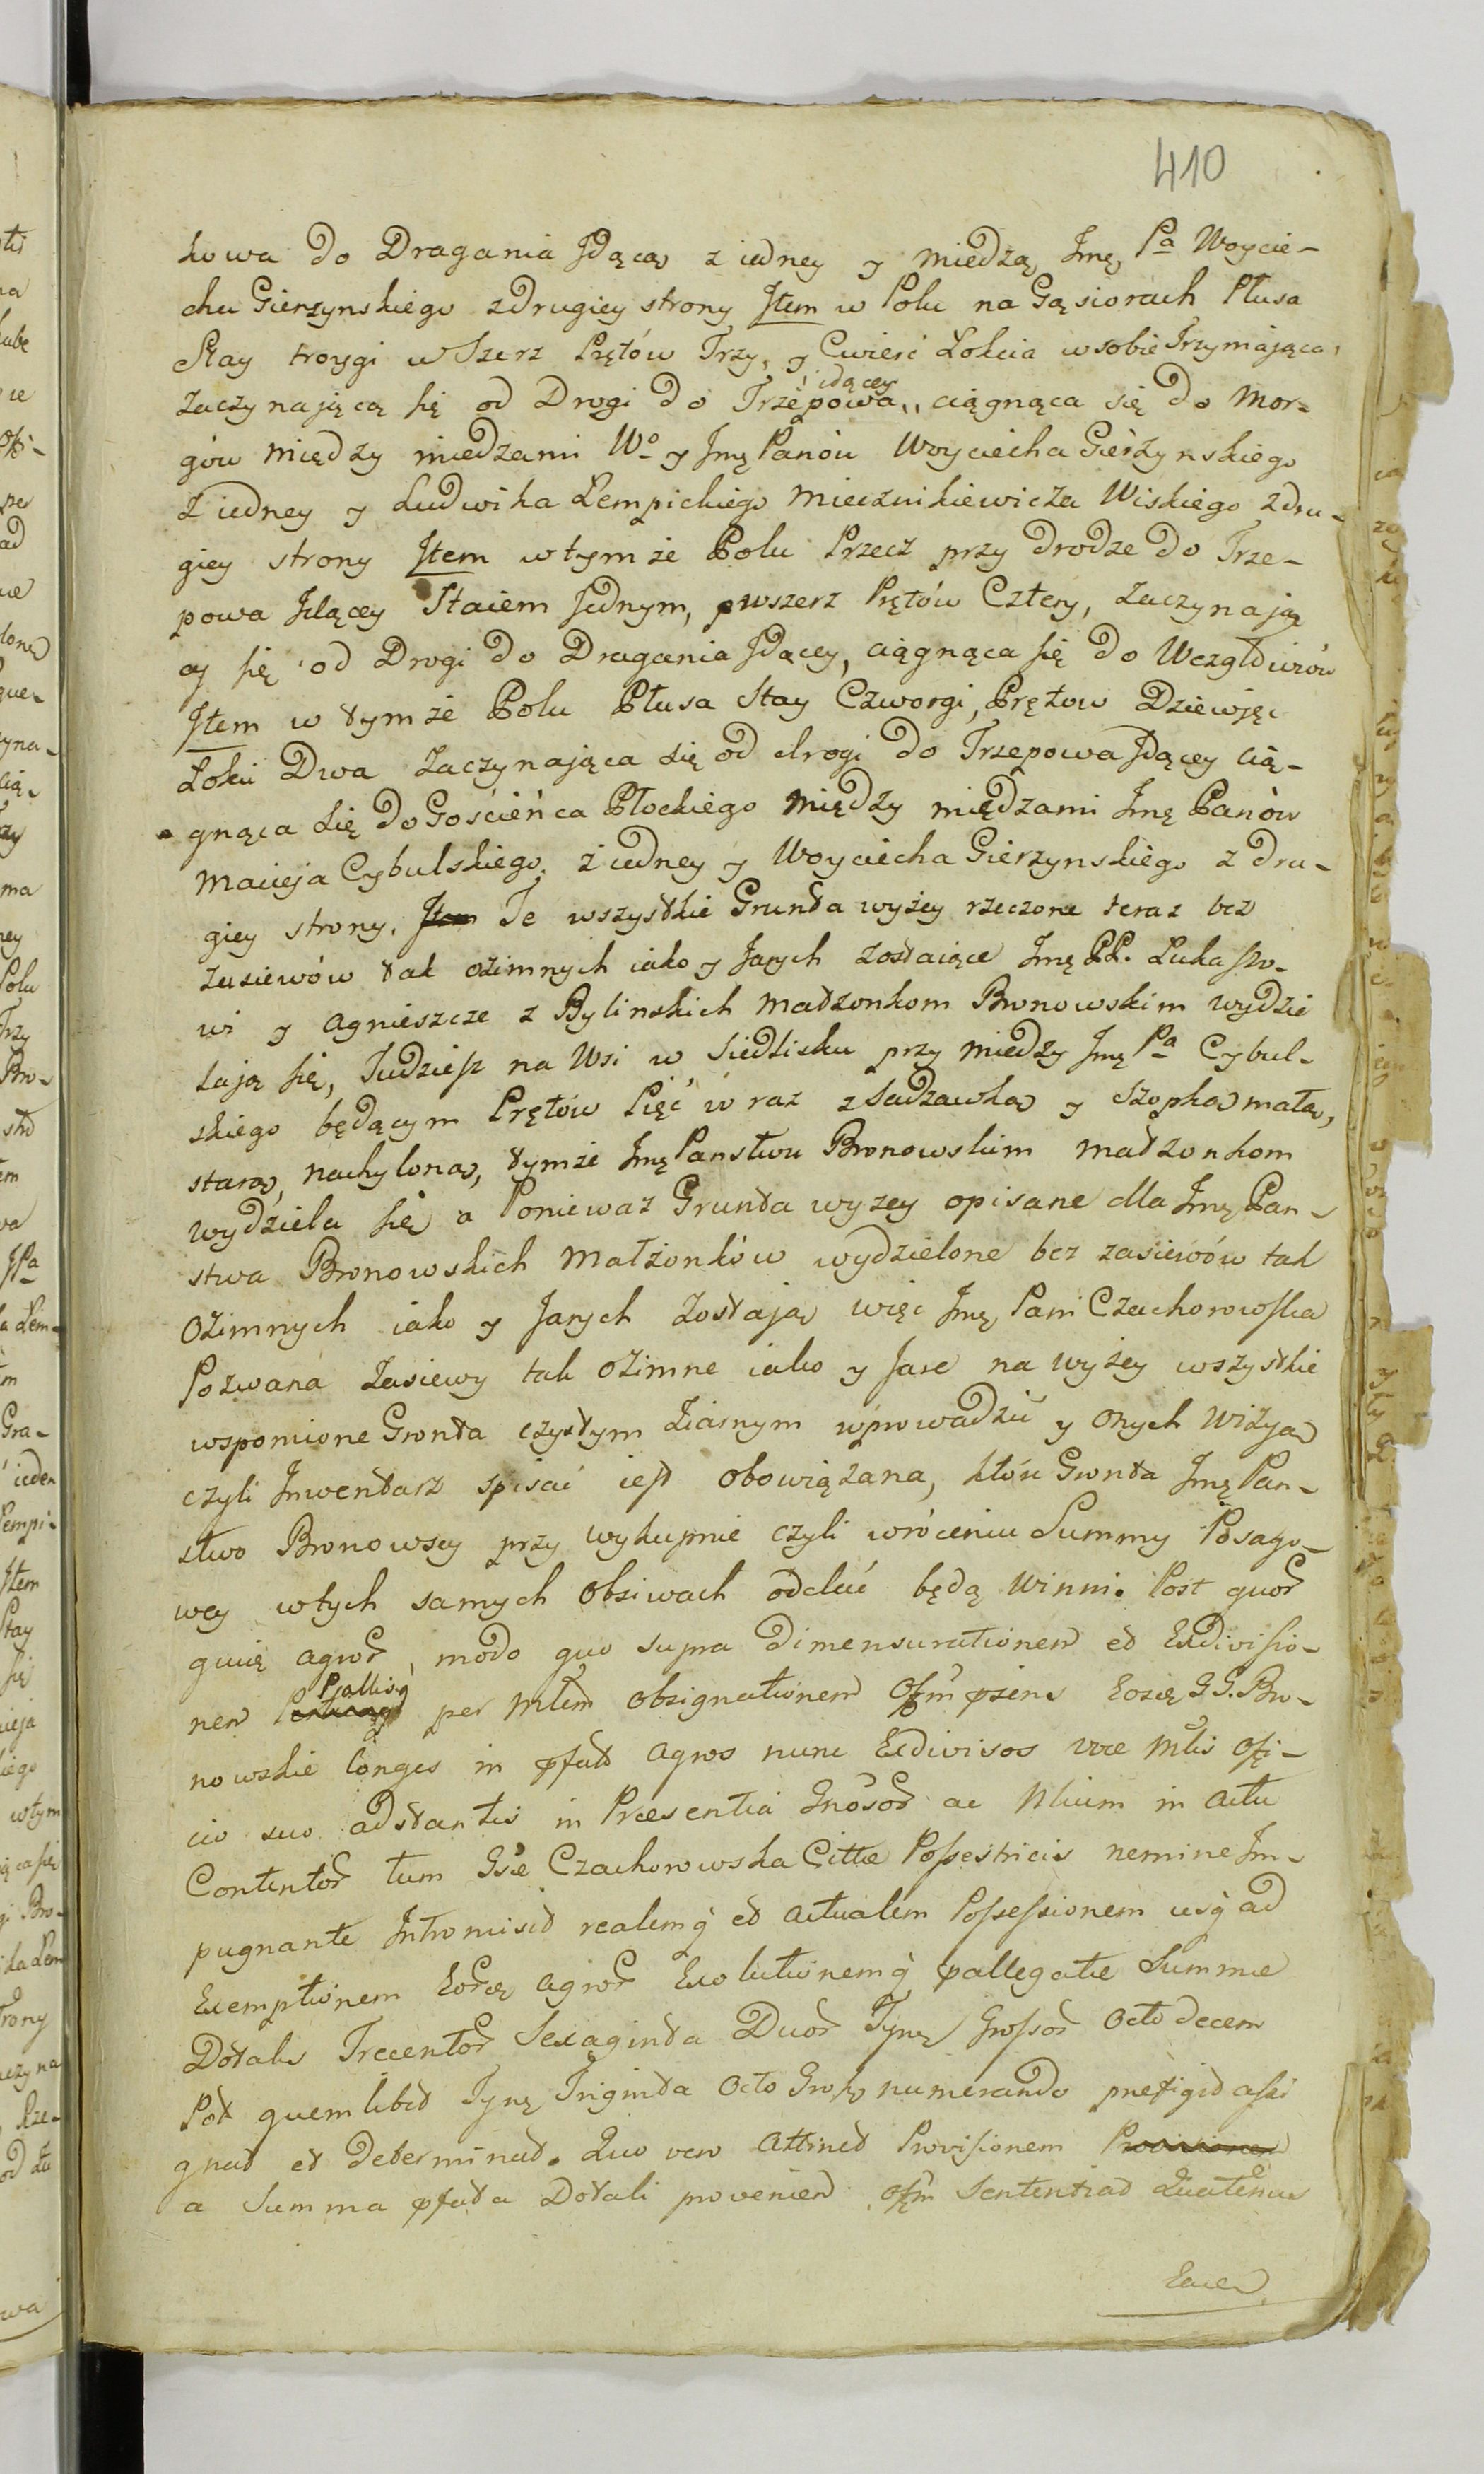 410
kowa do Dragania Jdącą z iedney y miedzą Jmę Pa Woycie-
cha Gierzynskiego z drugiey strony Jtem w Polu na Gąsiorach Płusa
Stay troygi w Szerz Prętów Trzy, y Cwierć Łokcia w sobie Trzymająca,
zaczynającą się od Drogi do Trzepowa idącey ciągnąca się do Mor-
gów między miedzami Wo y Jmę Panów Woyciecha Gierzynskiego
z iedney y Ludwika Lempickiego Miecznikiewicza Wiskiego z dru-
giey strony Jtem w tymże Polu Przecz przy drodze do Trze-
powa Jdącey Staiem Jednym, wszerz Prętów Cztery, zaczynają
cy się od Drogi do Dragania Jdącey, ciągnąca się do Wezgłowiów
Jtem w tymże Polu Płusa Stay Czworgi, Prętow Dziewięć
Łokci Dwa zaczynająca się od drogi do Trzepowa Jdącey cią-
gnąca się do Gościeńca Płockiego między międzami Jmę Panów
Macieja Cybulskiego z iedney y Woyciecha Gierzynskiego z dru-
giey strony. Jtem Te wszystkie Grunta wyżey rzeczone teraz bez
zasiewów tak ozimnych iako y Jarych zostaiące Jmę PP. Łukaszo-
wi y Agnieszcze z Bylinskich Małżonkom Bronowskim wydzie
lają się, Tudziesz na Wsi w Siedlisku przy miedzy Jmę Pa Cybul-
skiego będącym Prętów Pięć wraz z Sadzawką y Szopką małą,
starą, nachyloną, tymże Jmę Panstwu Bronowskim małzonkom
wydziela się a Poniewaz Grunta wyzey opisane dla Jmę Pan-
stwa Bronowskich Małżonków wydzielone bez zasiewów tak
Ozimnych iako y Jarych zostają więc Jmę Pani Czachorowska
Pozwana Zasiewy tak ozimne iako y Jare na wyżey wszystkie
wspomione Gronta czystym ziarnym wprowadzić y onych Wizyą
czyli Jnwentarz spisać iest obowiązana, które Gronta Jmę Pan-
stwo Bronowscy przy wykupnie czyli wróceniu Summy Posago-
wey w tych samych Obsiwach oddać będą winni. Post quor
modo quo supra Dimensurationem et Exdivisio-
nem per obsignationem
nowskie Conges in Agros nunc Exdivisos
cio suo adstantis in Praesentia ac in actu
Contentor tum Czachorowska Cittae Possestricis nemine Im-
pugnante Intromisit realemq et actualem Possessionem usq ad
Exemptionem Agror Exolutionemq Summae
Dotalis Trecentor Sexaginta Duor Tynę Grossor Octodecem
Pol quemlibet Tynę Triginta Octo numerando prefigit assi
gnat et Determinat. Quo vero Attinet Provisionem Provisionem
a Summa Dotali provenien Sententiat Quatenus